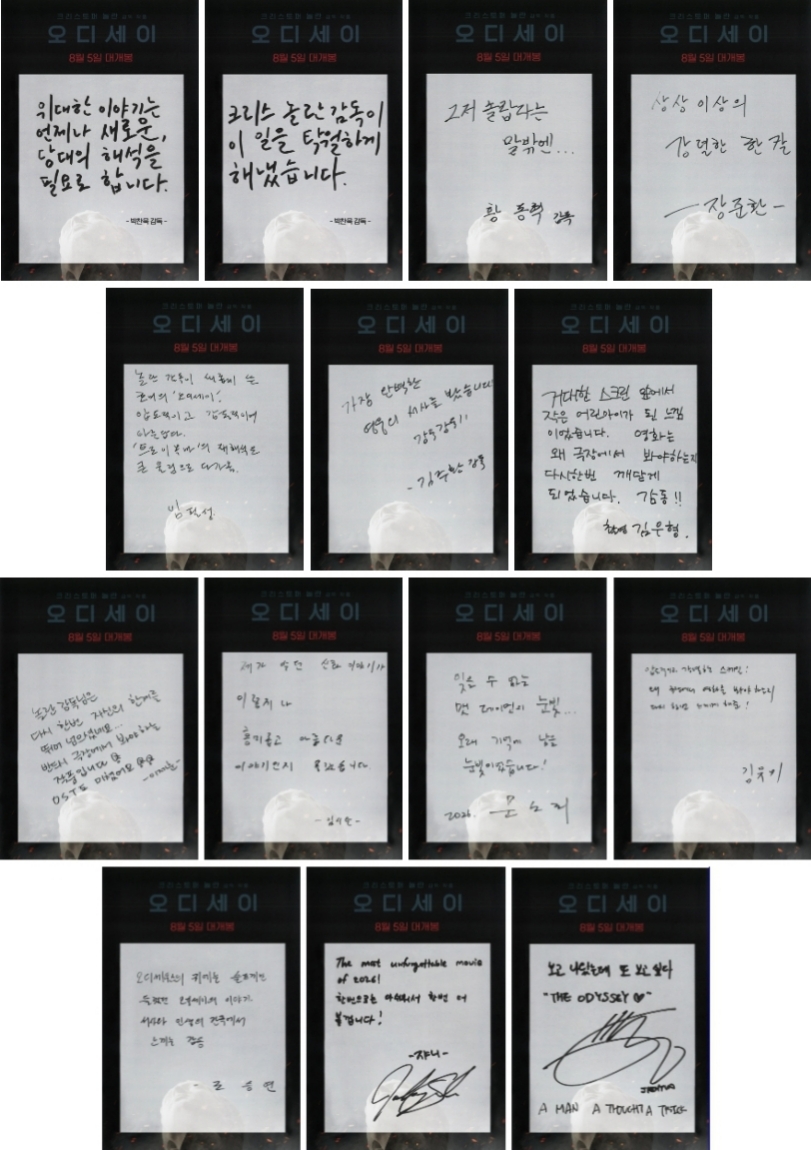 크리스토퍼 놀란 감독 작품
오디세이
8월 5일 대개봉
위대한 이야기는
언제나 새로운,
당대의 해석을
필요로 합니다.
- 박찬욱 감독 -
크리스토퍼 놀란 감독 작품
오디세이
8월 5일 대개봉
크리스 놀란 감독이
이 일을 탁월하게
해냈습니다.
- 박찬욱 감독 -
크리스토퍼 놀란 감독 작품
오디세이
8월 5일 대개봉
그저 놀랍다는
말밖엔...
황동혁 감독
크리스토퍼 놀란 감독 작품
오디세이
8월 5일 대개봉
상상 이상의
강렬한 한 칼
- 장준환 -
크리스토퍼 놀란 감독 작품
오디세이
8월 5일 대개봉
놀란 감독이 새롭게 쓴
압도적이고 감동적이며
'트로이 목마'의 재해석은
큰 울림으로 다가옴.
임필성
크리스토퍼 놀란 감독 작품
오디세이
8월 5일 대개봉
가장 완벽한
영웅의 서사를 봤습니다
감동감동!!
- 김주환 감독
크리스토퍼 놀란 감독 작품
오디세이
8월 5일 대개봉
거대한 스크린 앞에서
작은 어린아이가 된 느낌
이었습니다. 영화는
왜 극장에서 봐야하는지
다시한번 깨닫게
되었습니다. 감동!!
촬영 김우형.
크리스토퍼 놀란 감독 작품
오디세이
8월 5일 대개봉
놀란 감독님은
다시 한번 자신의 한계를
뛰어 넘으셨네요...
반드시 극장에서 봐야하는
작품입니다
OST도 미쳤어요
크리스토퍼 놀란 감독 작품
오디세이
8월 5일 대개봉
이렇게나
흥미롭고 아름다운
이야기인지 몰랐습니다.
크리스토퍼 놀란 감독 작품
오디세이
8월 5일 대개봉
잊을 수 없는
맷 데이먼의 눈빛...
오래 기억에 남는
눈빛이었습니다!
2026. 문소리
크리스토퍼 놀란 감독 작품
오디세이
8월 5일 대개봉
왜 극장에서 영화를 봐야 하는지
다시 한번 느끼게 해준!
크리스토퍼 놀란 감독 작품
오디세이
8월 5일 대개봉
이야기
느끼는 감동
크리스토퍼 놀란 감독 작품
오디세이
8월 5일 대개봉
The most unforgettable movie
of 2026!
한번으로는 아쉬워서 한번 더
볼겁니다!
- 쟈니 -
크리스토퍼 놀란 감독 작품
오디세이
8월 5일 대개봉
보고 나왔는데 또 보고 싶다
"THE ODYSSEY ♡"
A MAN A THOUGHT A TRICK